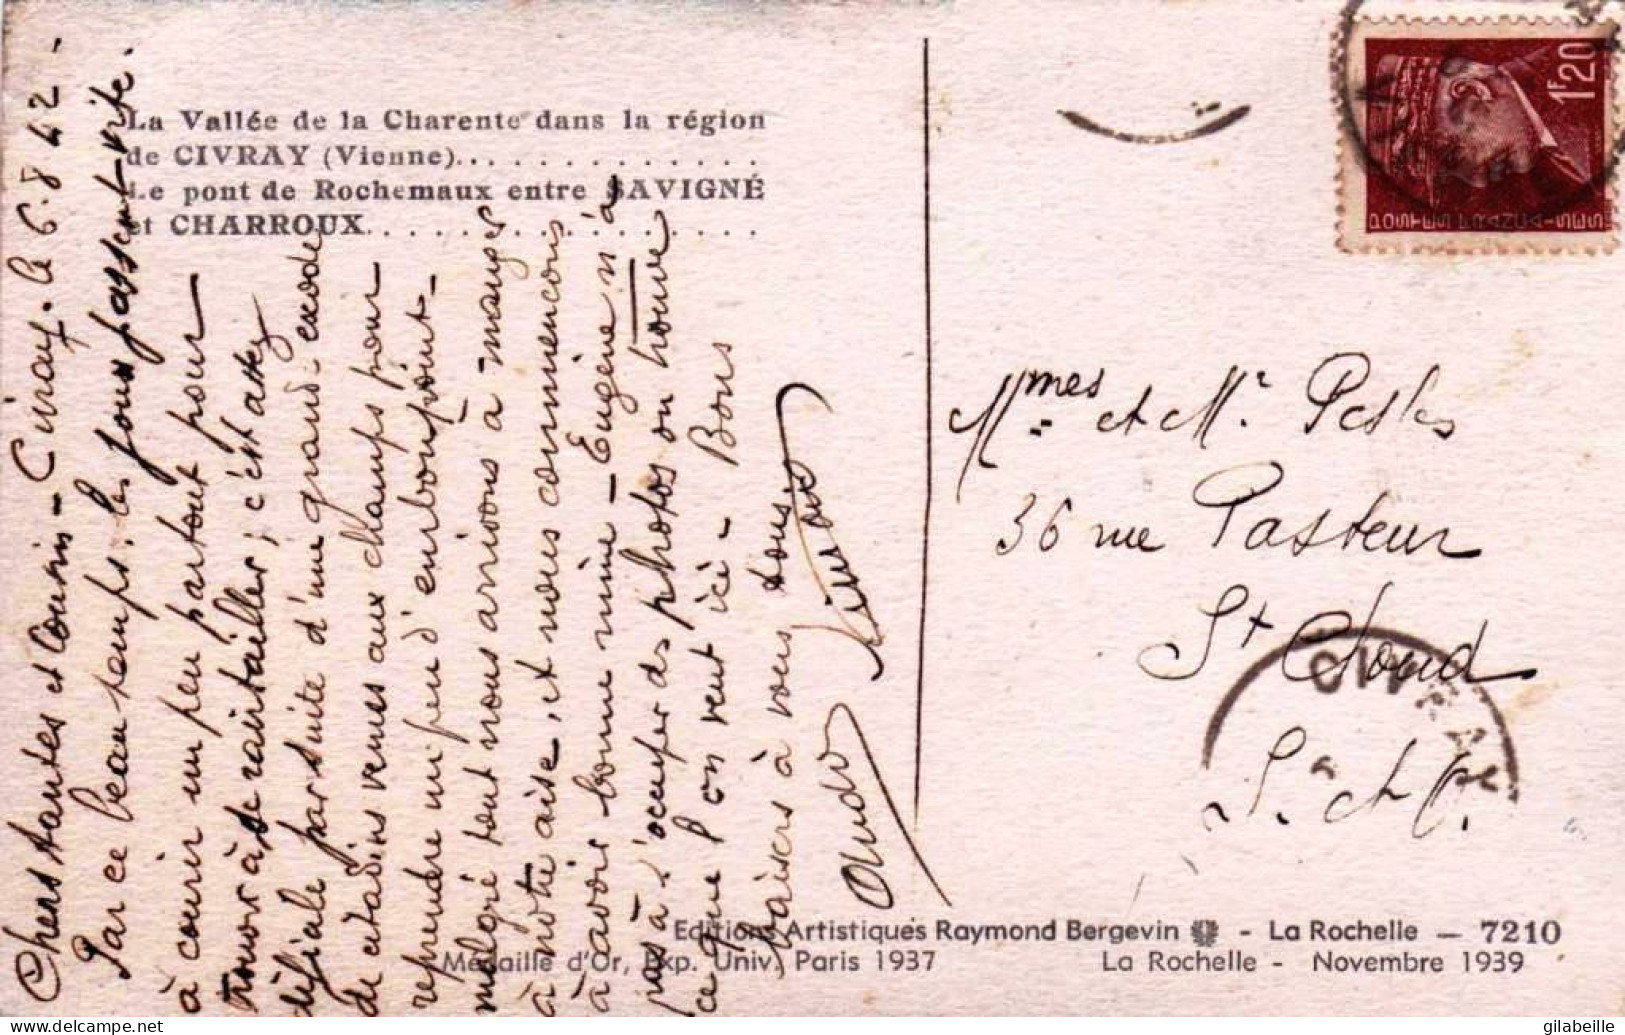 La Vallée de la Charente dans la région
de CIVRAY (Vienne)
Le pont de Rochemaux entre SAVIGNÉ
et CHARROUX
Chers tantes et Cousin - Civray. le 6.8.42 -
Par ce beau temps, les jours passent vite.
à courir un peu partout pour
pouvoir se ravitailler ; c'est assez
déficile par suite d'une grande exode
de citadins venus aux champs pour
reprendre un peu d'embonpoint -
malgré tout nous arrivons à manger
à notre aise, et nous commencons
à avoir bonne mine - Eugène n'a
pas à s'occuper des photos on trouve
ce que l'on veut ici - Bons
baisers à vous tous
Mmes et Mr Pesles
36 rue Pasteur
St Cloud
S. et O.
1F20
POSTES FRANÇAISES
CIVRAY
Editions Artistiques Raymond Bergevin - La Rochelle - 7210
Médaille d'Or, Exp. Univ. Paris 1937 La Rochelle - Novembre 1939
delcampe.net
gilabeille